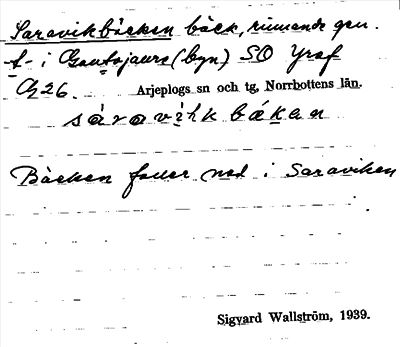 Saravikbäcken bäck, rinnande gen.
t. i Gautojaure (byn) SO Yraf
G26. Arjeplogs sn och tg, Norrbottens län.
Bäcken faller ned i Saraviken
Sigvard Wallström, 1939.